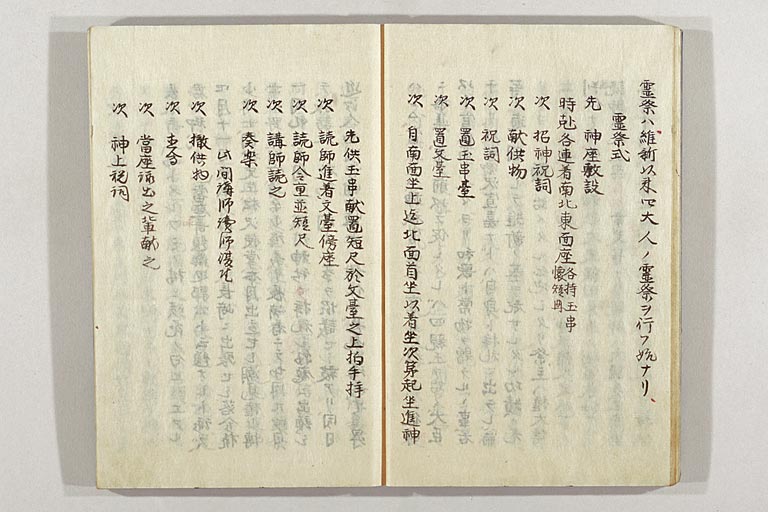 霊祭ハ維新以来四大人ノ霊祭ヲ行フ始ナリ
霊祭式
先 神座敷設
時尅各連着南北東面座 各持玉串 懐短冊
次 招神祝詞
次 献供物
次 祝詞
次 置玉串臺
次 置文臺
次 自南面坐上迄北面首坐以着坐次第起坐進神
先供玉串献置短尺於文臺之上拍手拝
次 読師進着文臺傍座
次 読師令重並短尺
次 講師読之
次 奏楽
此間講師読師復座
次 撤供物
次 直会
次 當座詠出之輩献之
次 神上祝詞